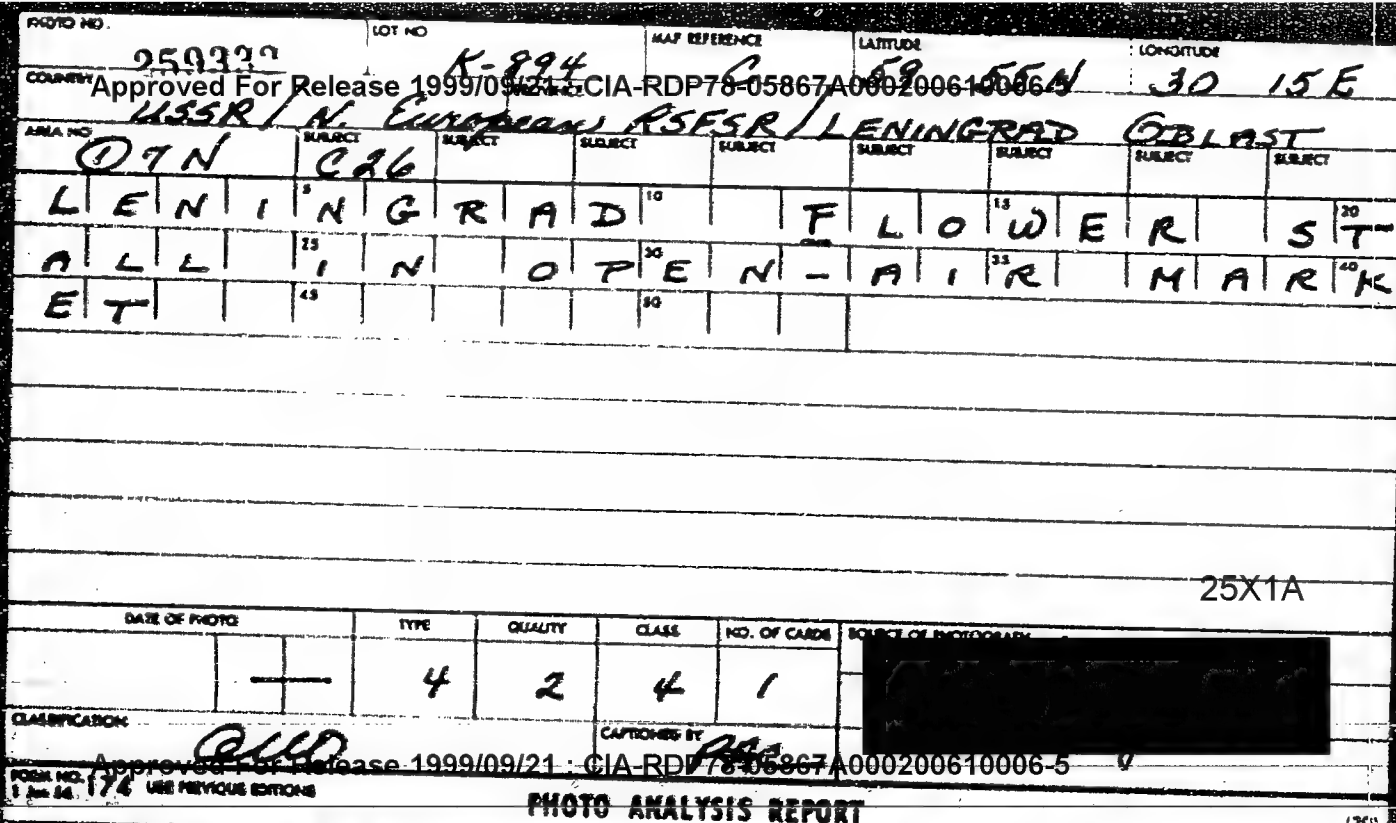 PHOTO NO. LOT NO MAP REFERENCE LATITUDE LONGITUDE
K-894 C 59 55N 30 15E
COUNTRY Approved For Release 1999/09/21 : CIA-RDP78-05867A000200610006-5
USSR / N. European RSFSR / LENINGRAD OBLAST
AREA NO SUBJECT SUBJECT SUBJECT SUBJECT SUBJECT SUBJECT SUBJECT SUBJECT
① 7N C26
LENINGRAD FLOWER ST-
5 10 15 20
ALL IN OPEN-AIR MARK
25 30 35 40
ET
45 50
25X1A
DATE OF PHOTO TYPE QUALITY CLASS NO. OF CARDS SOURCE OF PHOTOGRAPH
4 2 4 1
CLASSIFICATION CAPTIONED BY
Approved For Release 1999/09/21 : CIA-RDP78-05867A000200610006-5
FORM NO. 174 USE PREVIOUS EDITIONS
1 Jun 54
PHOTO ANALYSIS REPORT